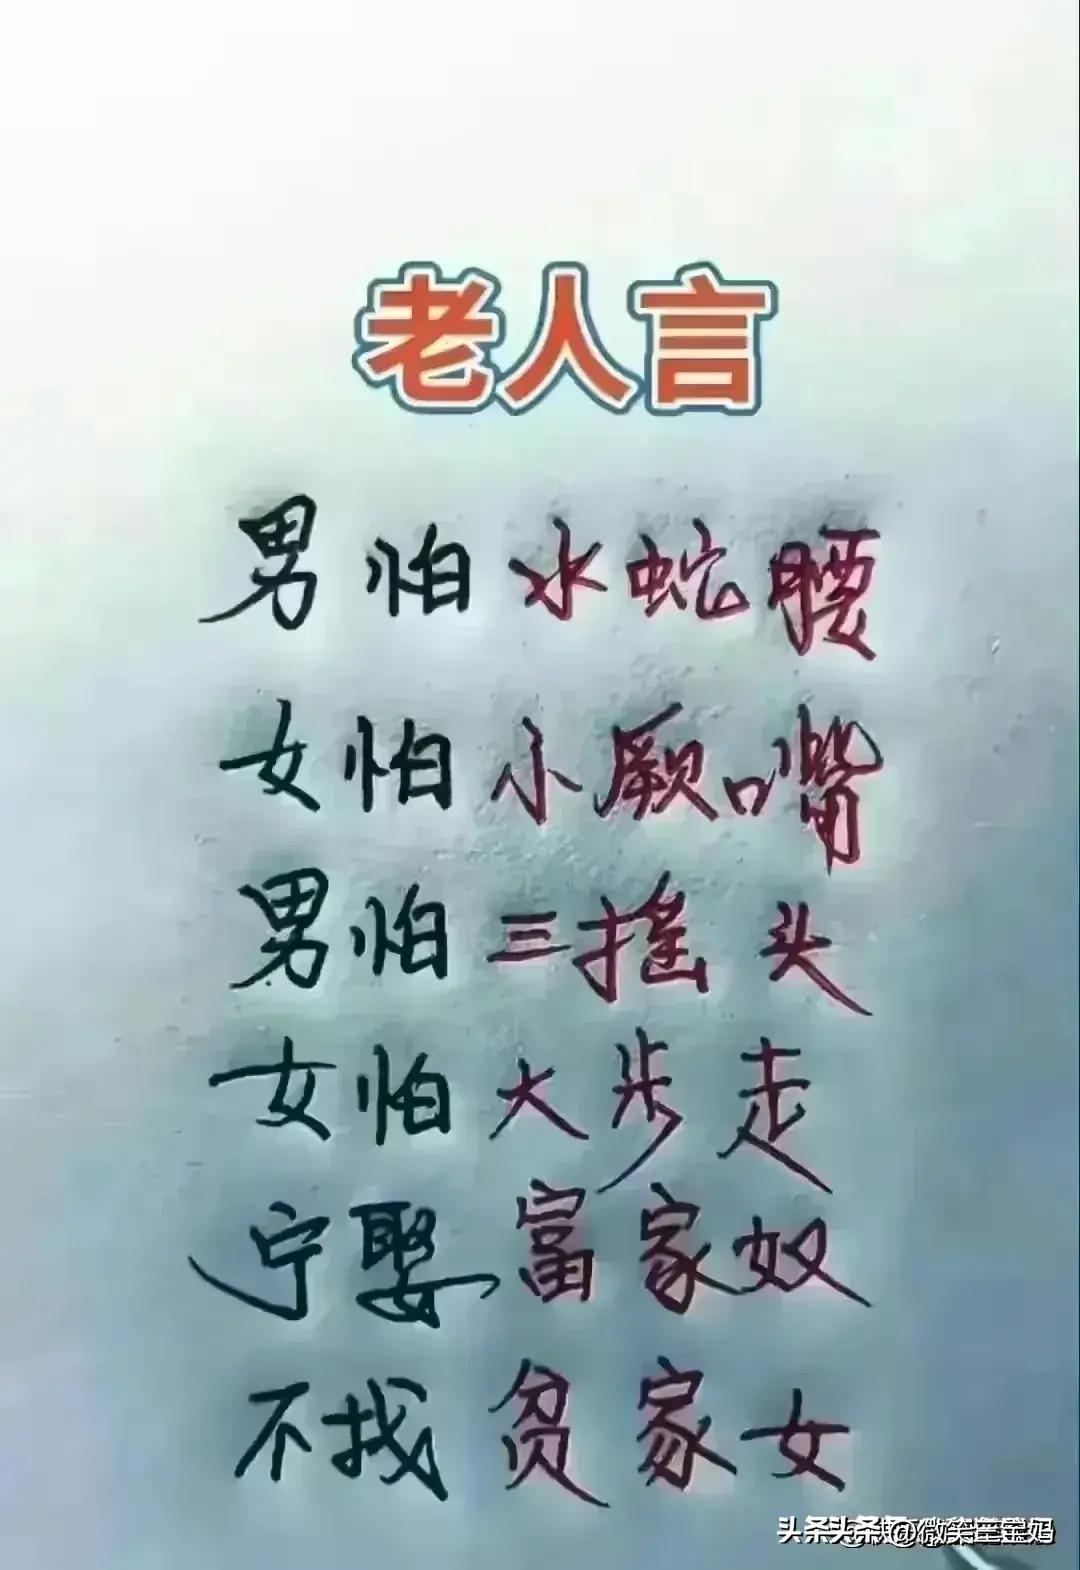 老人言
男怕水蛇腰
女怕小厥嘴
男怕三摇头
女怕大步走
宁娶富家奴
不找贫家女
头条 @微笑三宝妈